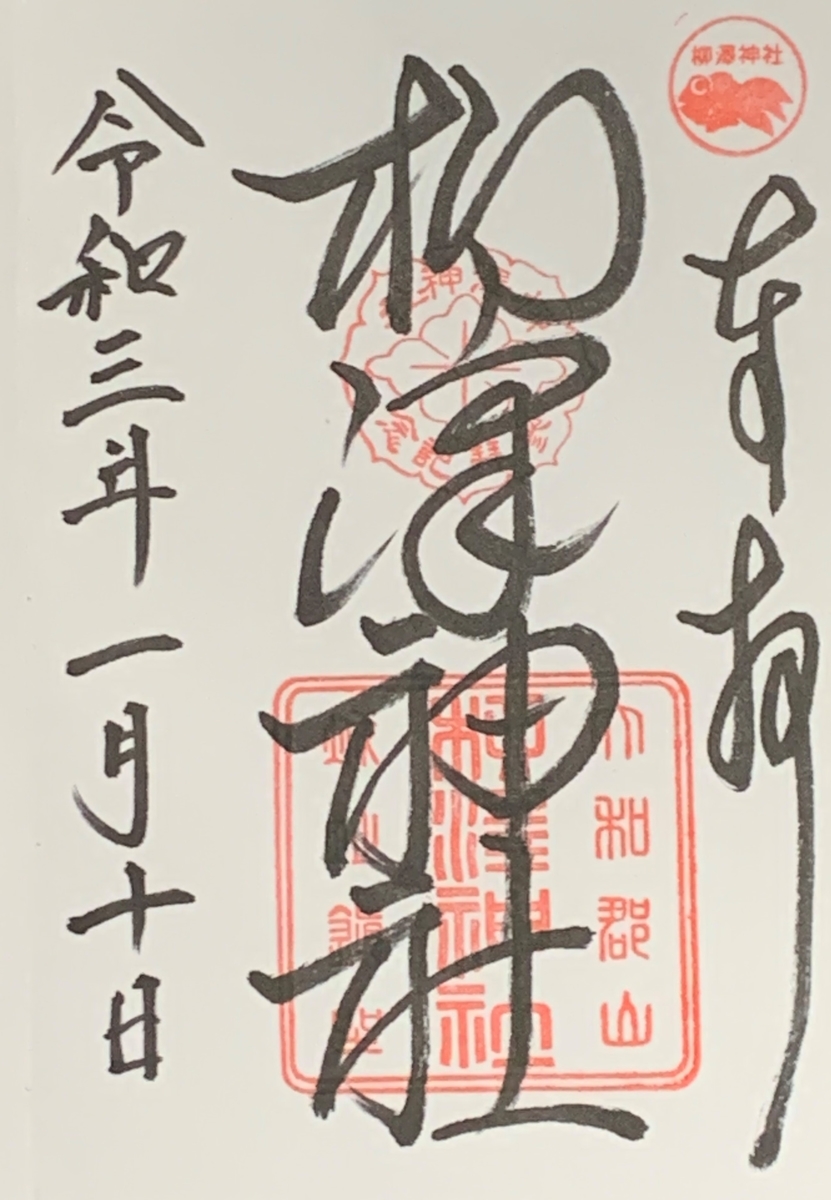 柳澤神社
奉拝
柳澤神社
大和郡山
柳澤神社
令和三年一月十日